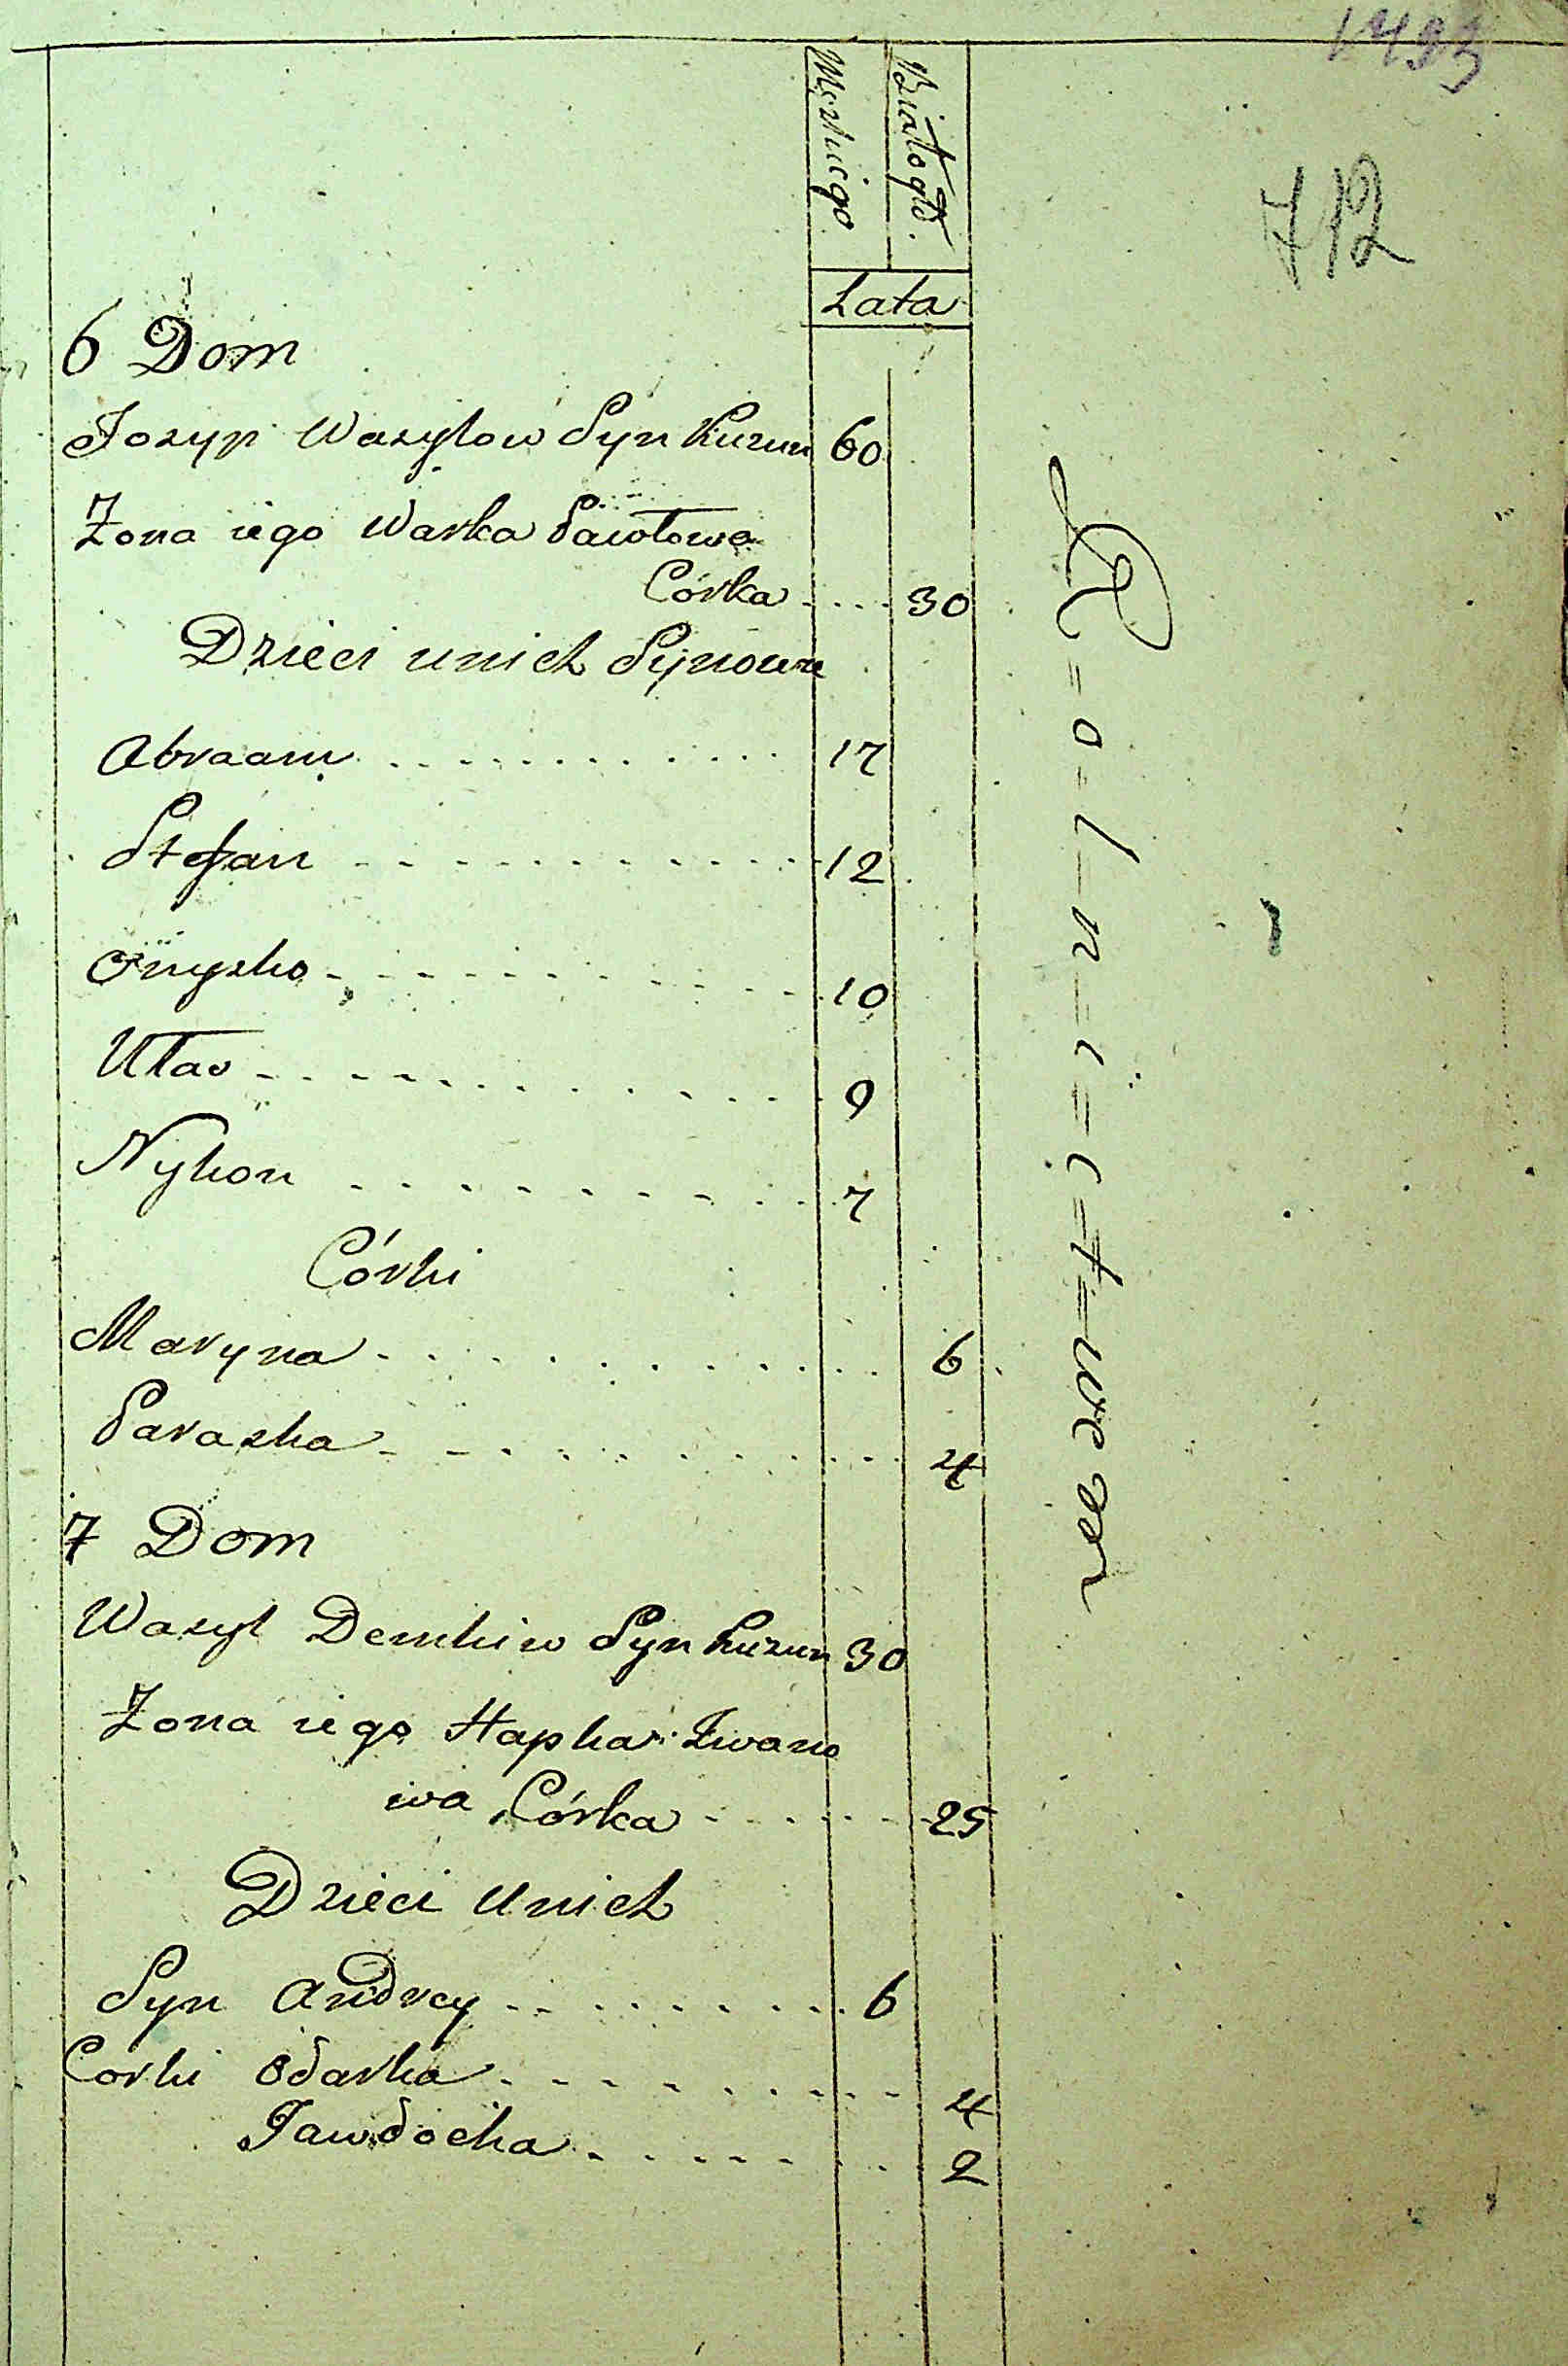 1493
712
Męzkiego
Białogło.
Lata
6 Dom
Jozyp Wasylow Syn Kuzun 60
Zona iego Warka Pawłowa
Córka .... 30
Dzieci unich Synowie
Abraam ............ 17
Stefan ............ 12
Onyszko ............ 10
Ułas ............ 9
Nykon .......... 7
Córki
Maryna ............ 6
Paraska ............ 4
7 Dom
Wasyl Demkiw Syn Kuzun 30
Zona iego Hapka Iwano
wa Córka ...... 25
Dzieci unich
Syn Andrey ......... 6
Corki Odarka ......... 4
Jawdocha ....... 2
R=o-l-n=i=i=t=w